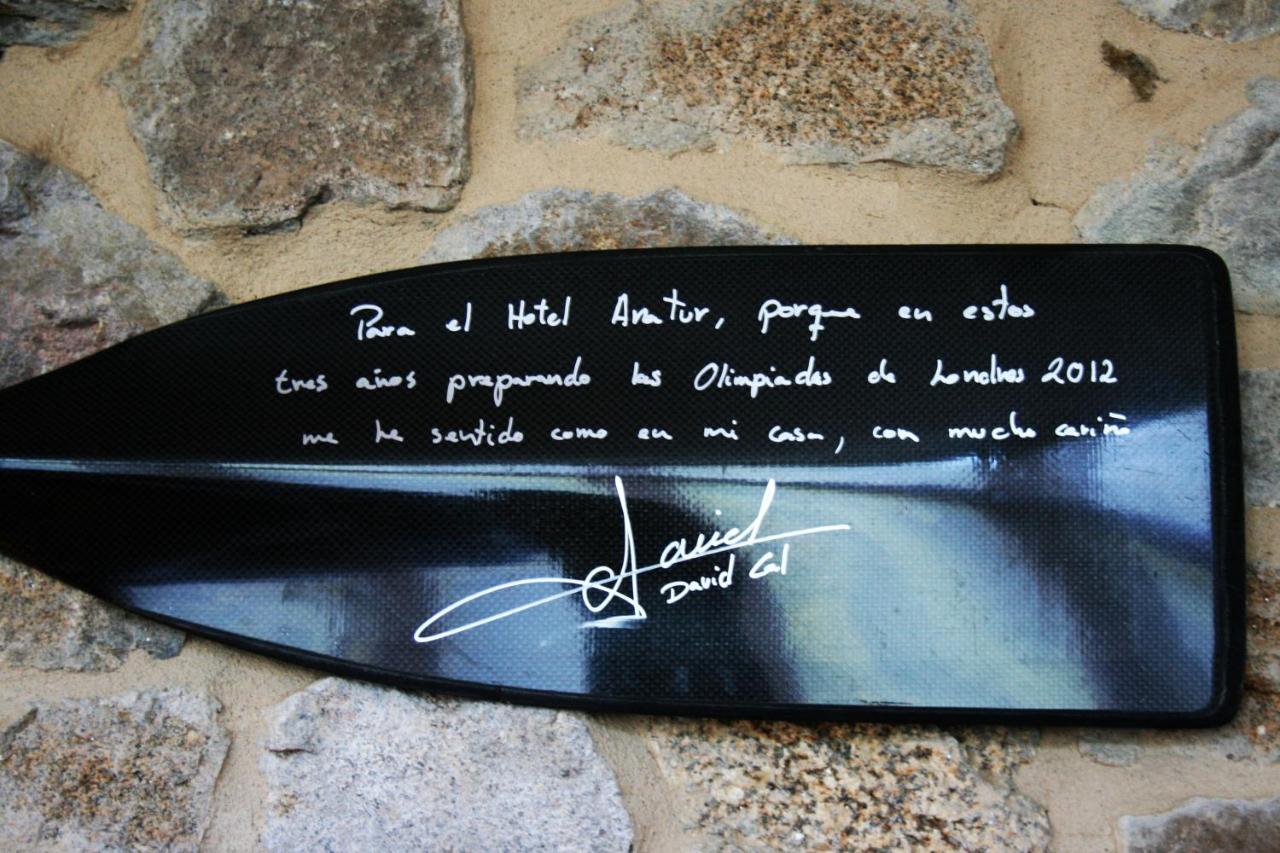 Para el Hotel Aratur, porque en estos
tres años preparando las Olimpiadas de Londres 2012
me he sentido como en mi casa, con mucho cariño
David
David Cal